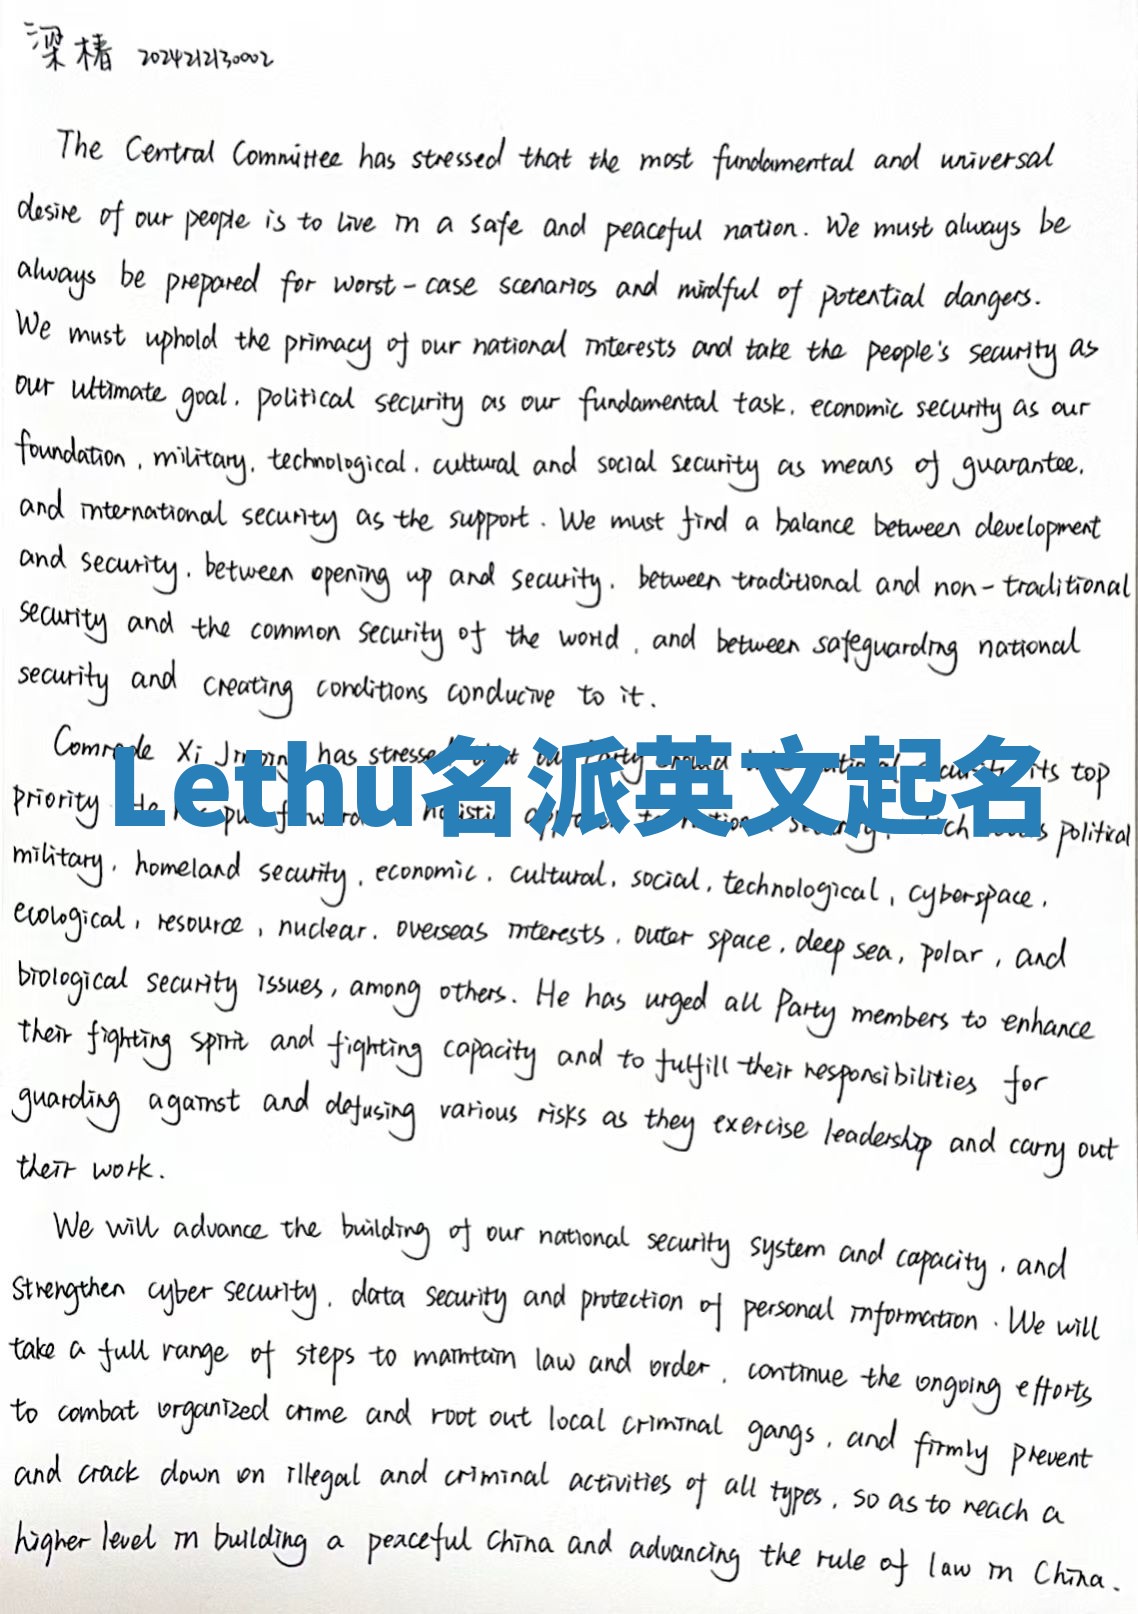 梁椿 2024212130002
The Central Committee has stressed that the most fundamental and universal
desire of our people is to live in a safe and peaceful nation. We must always be
always be prepared for worst-case scenarios and mindful of potential dangers.
We must uphold the primacy of our national interests and take the people's security as
our ultimate goal, political security as our fundamental task, economic security as our
foundation, military, technological, cultural and social security as means of guarantee,
and international security as the support. We must find a balance between development
and security, between opening up and security, between traditional and non-traditional
security and the common security of the world, and between safeguarding national
security and creating conditions conducive to it.
Comrade Xi Jinping has stressed that our Party its top
Lethu名派英文起名
priority political
military, homeland security, economic, cultural, social, technological, cyberspace,
ecological, resource, nuclear, overseas interests, outer space, deep sea, polar, and
biological security issues, among others. He has urged all Party members to enhance
their fighting spirit and fighting capacity and to fulfill their responsibilities for
guarding against and defusing various risks as they exercise leadership and carry out
their work.
We will advance the building of our national security system and capacity, and
strengthen cyber security, data security and protection of personal information. We will
take a full range of steps to maintain law and order, continue the ongoing efforts
to combat organized crime and root out local criminal gangs, and firmly prevent
and crack down on illegal and criminal activities of all types, so as to reach a
higher level in building a peaceful China and advancing the rule of law in China.